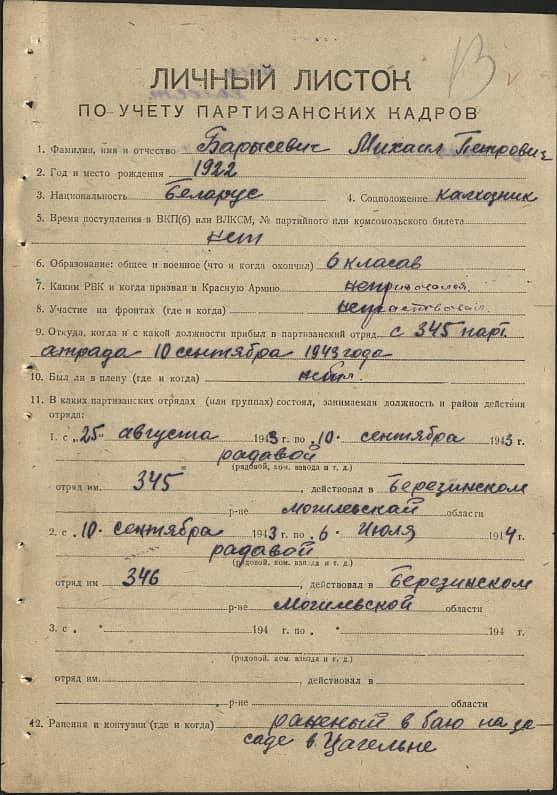 ЛИЧНЫЙ ЛИСТОК
ПО УЧЕТУ ПАРТИЗАНСКИХ КАДРОВ
1. Фамилия, имя и отчество Барысевич Михаил Петрович
2. Год и место рождения 1922
3. Национальность Беларус 4. Соцположение калхозник
5. Время поступления в ВКП(б) или ВЛКСМ, № партийного или комсомольского билета
нет
6. Образование: общее и военное (что и когда окончил) 6 класав
7. Каким РВК и когда призван в Красную Армию непризывался
8. Участие на фронтах (где и когда)
9. Откуда, когда и с какой должности прибыл в партизанский отряд с 345 парт.
атрада 10 сентября 1943 года
10. Был ли в плену (где и когда) небыл.
11. В каких партизанских отрядах (или группах) состоял, занимаемая должность и район действия
отряда:
1. с „25" августа 1943 г. по „10" сентября 1943 г.
радавой
(рядовой, ком. взвода и т. д.)
отряд им. 345, действовал в Березинском
р-не Могилевскай области
2. с „10" сентября 1943 г. по „6" Июля 1944 г.
радавой
(рядовой, ком. взвода и т. д.)
отряд им 346, действовал в Березинском
р-не Могилевской области
3. с „ " 194 г. по „ " 194 г.
(рядовой, ком. взвода и т. д.)
отряд им. , действовал в
р-не области
12. Ранения и контузии (где и когда) раненый в баю на за-
саде в Цагельне